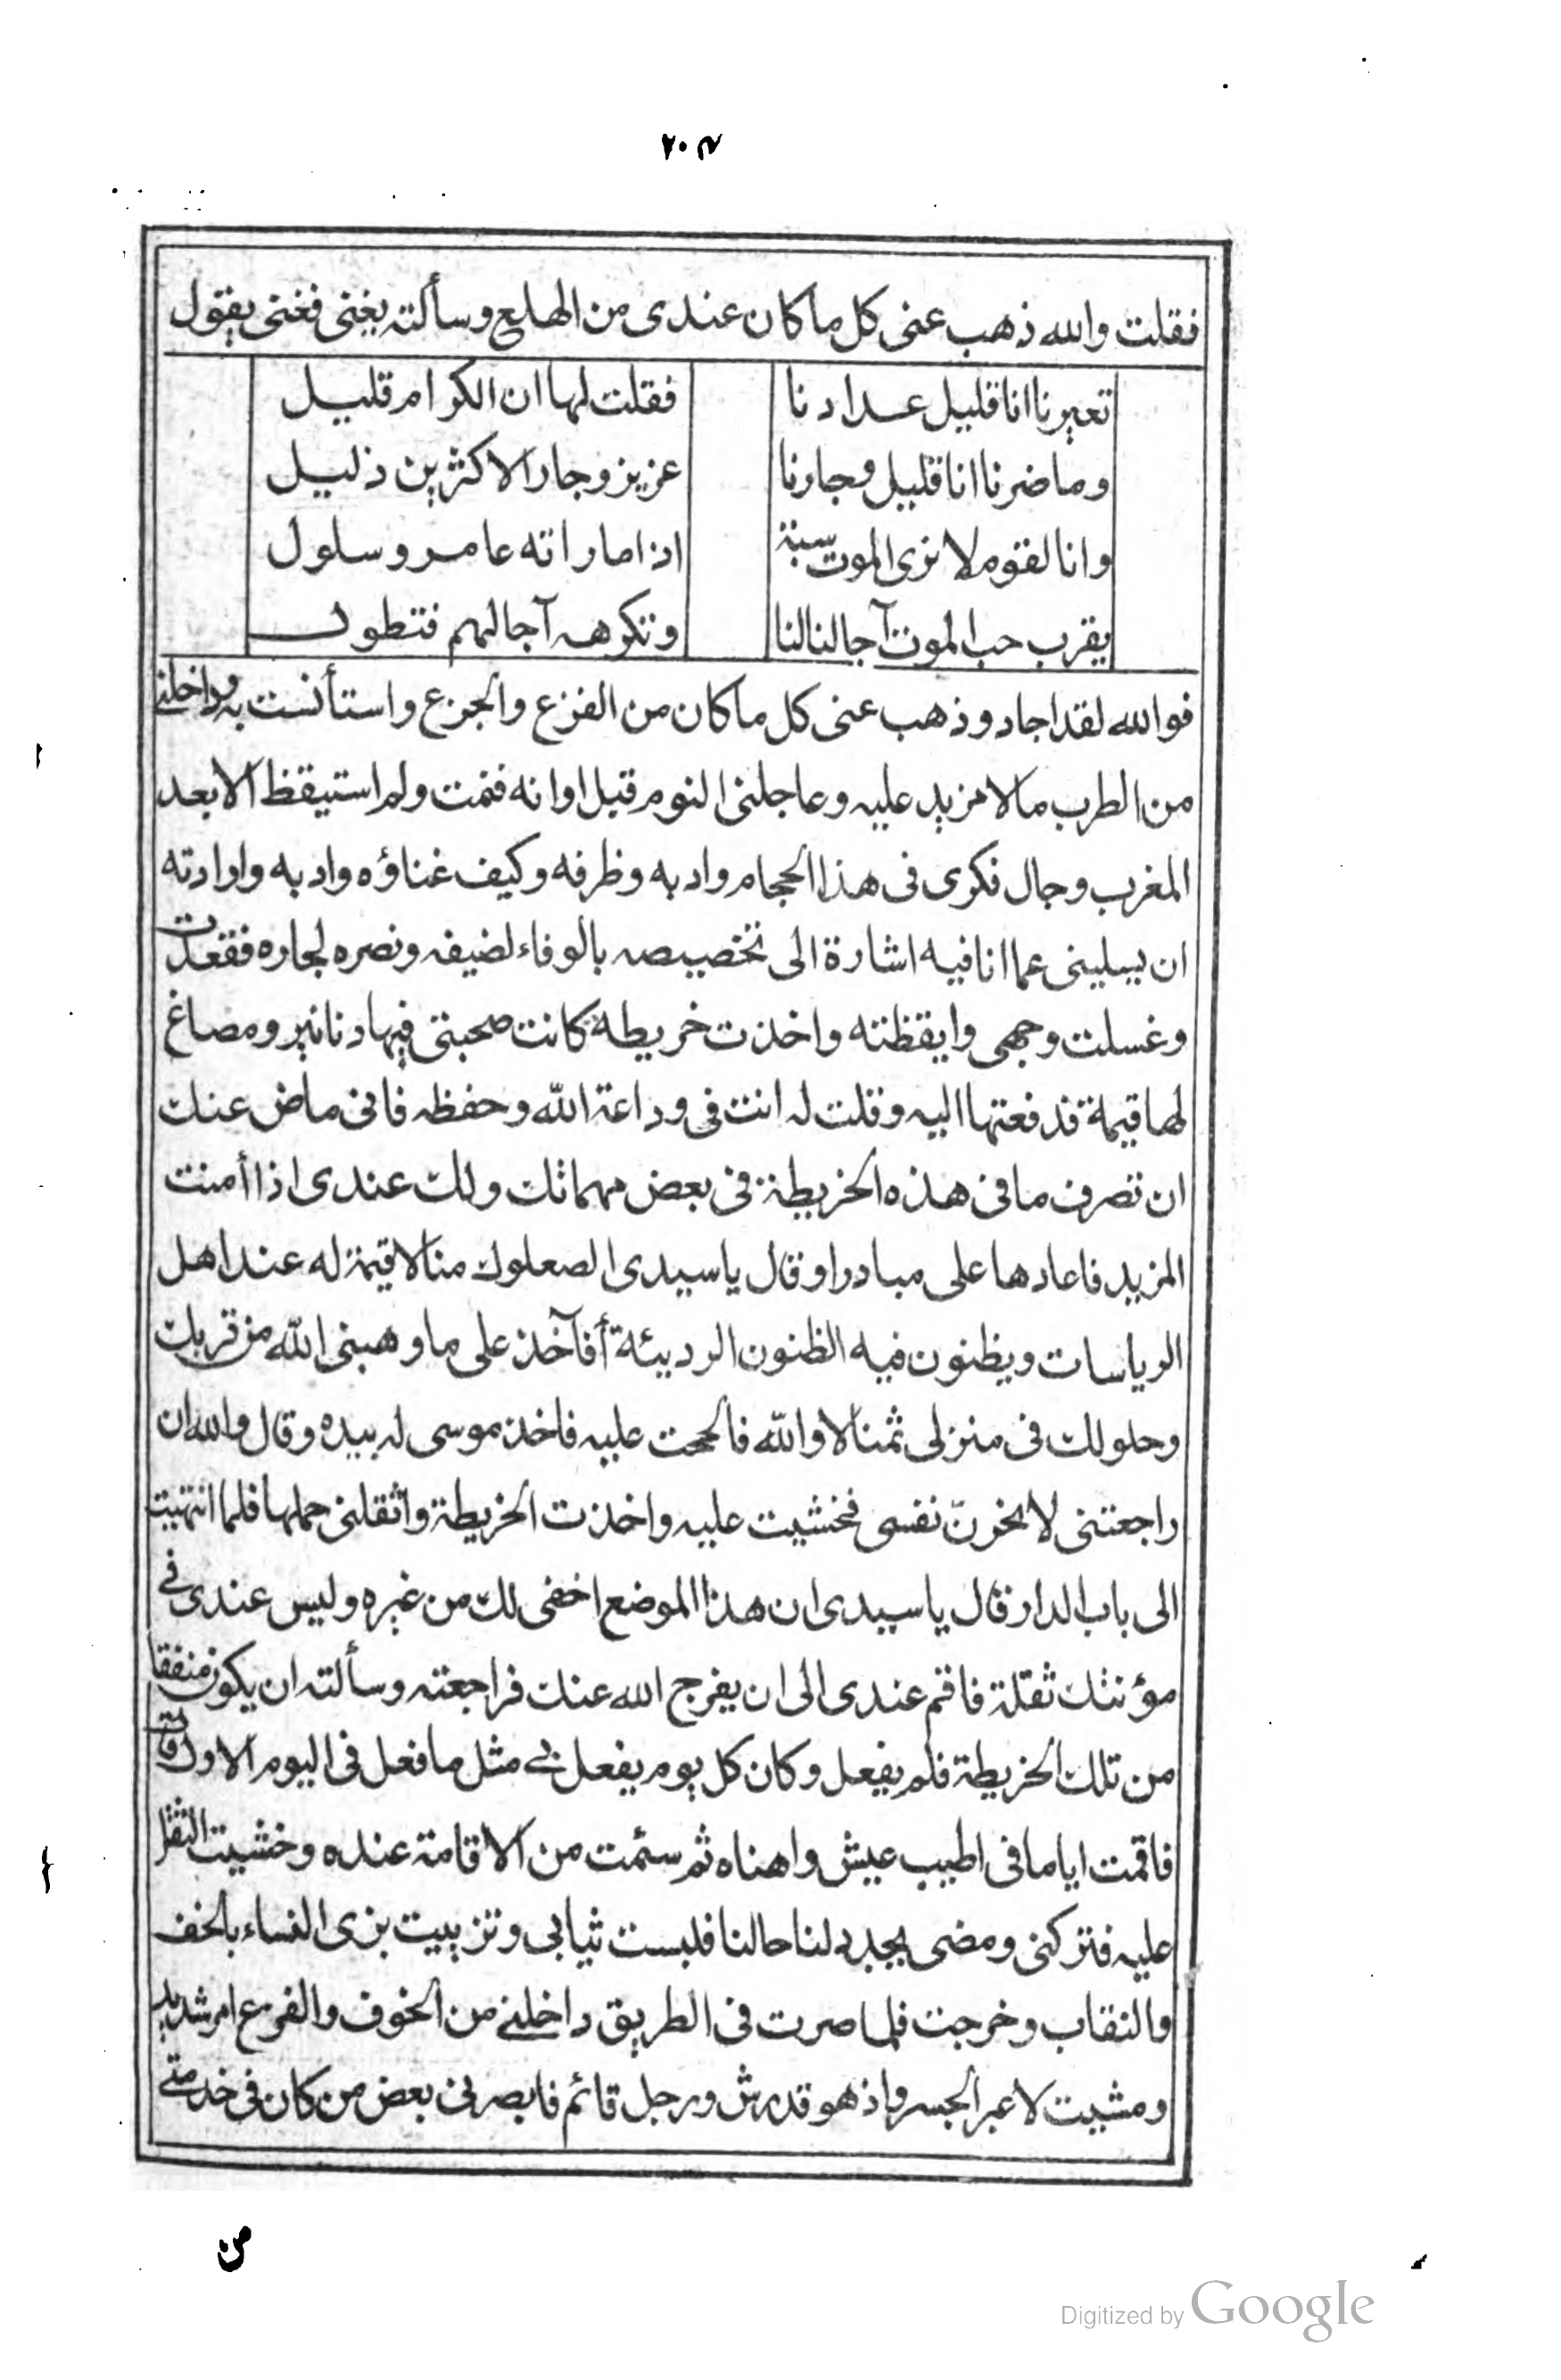 ٢٠٤
فقلت والله ذهب عنى كل ما كان عندى من الهلع وسألته يغنى فغنى يقول
تعيرنا انا قليل عدادنا فقلت لها ان الكرام قليل
وما ضرنا انا قليل وجارنا عزيز وجار الاكثرين ذليل
وانا لقوم لا نرى الموت سبة اذا ما راته عامر وسلول
يقرب حب الموت آجالنا لنا وتكرهه آجالهم فتطول
فوالله لقد اجاد وذهب عنى كل ما كان من الفزع والجزع واستأنست به وداخلنى
من الطرب ما لا مزيد عليه وعاجلنى النوم قبل اوانه فنمت ولم استيقظ الا بعد
المغرب وجال فكرى فى هذا الحجام وادبه وظرفه وكيف غناؤه وادبه وارادته
ان يسلينى عما انا فيه اشارة الى تخصيصه بالوفاء لضيفه ونصره لجاره فقعدت
وغسلت وجهى وايقظته واخذت خريطة كانت صحبتى فيها دنانير ومصاغ
لها قيمة فدفعتها اليه وقلت له انت فى وداعة الله وحفظه فانى ماض عنك
ان تصرف ما فى هذه الخريطة فى بعض مهماتك ولك عندى اذا أمنت
المزيد فاعادها على مبادرا وقال يا سيدى الصعلوك منا لا قيمة له عند اهل
الرياسات ويظنون فيه الظنون الرديئة أفآخذ على ما وهبنى الله من قربك
وحلولك فى منزلى ثمنا لا والله فالححت عليه فاخذ موسى له بيده وقال والله ان
راجعتنى لانحرنّ نفسى فخشيت عليه واخذت الخريطة واثقلنى حملها فلما انتهيت
الى باب الدار قال يا سيدى ان هذا الموضع اخفى لك من غيره وليس عندى فى
مؤنتك ثقلة فاقم عندى الى ان يفرج الله عنك فراجعته وسألته ان يكون منفقا
من تلك الخريطة فلم يفعل وكان كل يوم يفعل بى مثل ما فعل فى اليوم الاول قال
فاقمت اياما فى اطيب عيش واهناه ثم سئمت من الاقامة عنده وخشيت التثقل
عليه فتركنى ومضى يجدد لنا حالنا فلبست ثيابى وتزييت بزى النساء بالخف
والنقاب وخرجت فلما صرت فى الطريق داخلنى من الخوف والفزع امر شديد
ومشيت لاعبر الجسر واذ هو قد رش ورجل قائم فابصرنى بعض من كان فى خدمتى
من
Digitized by Google